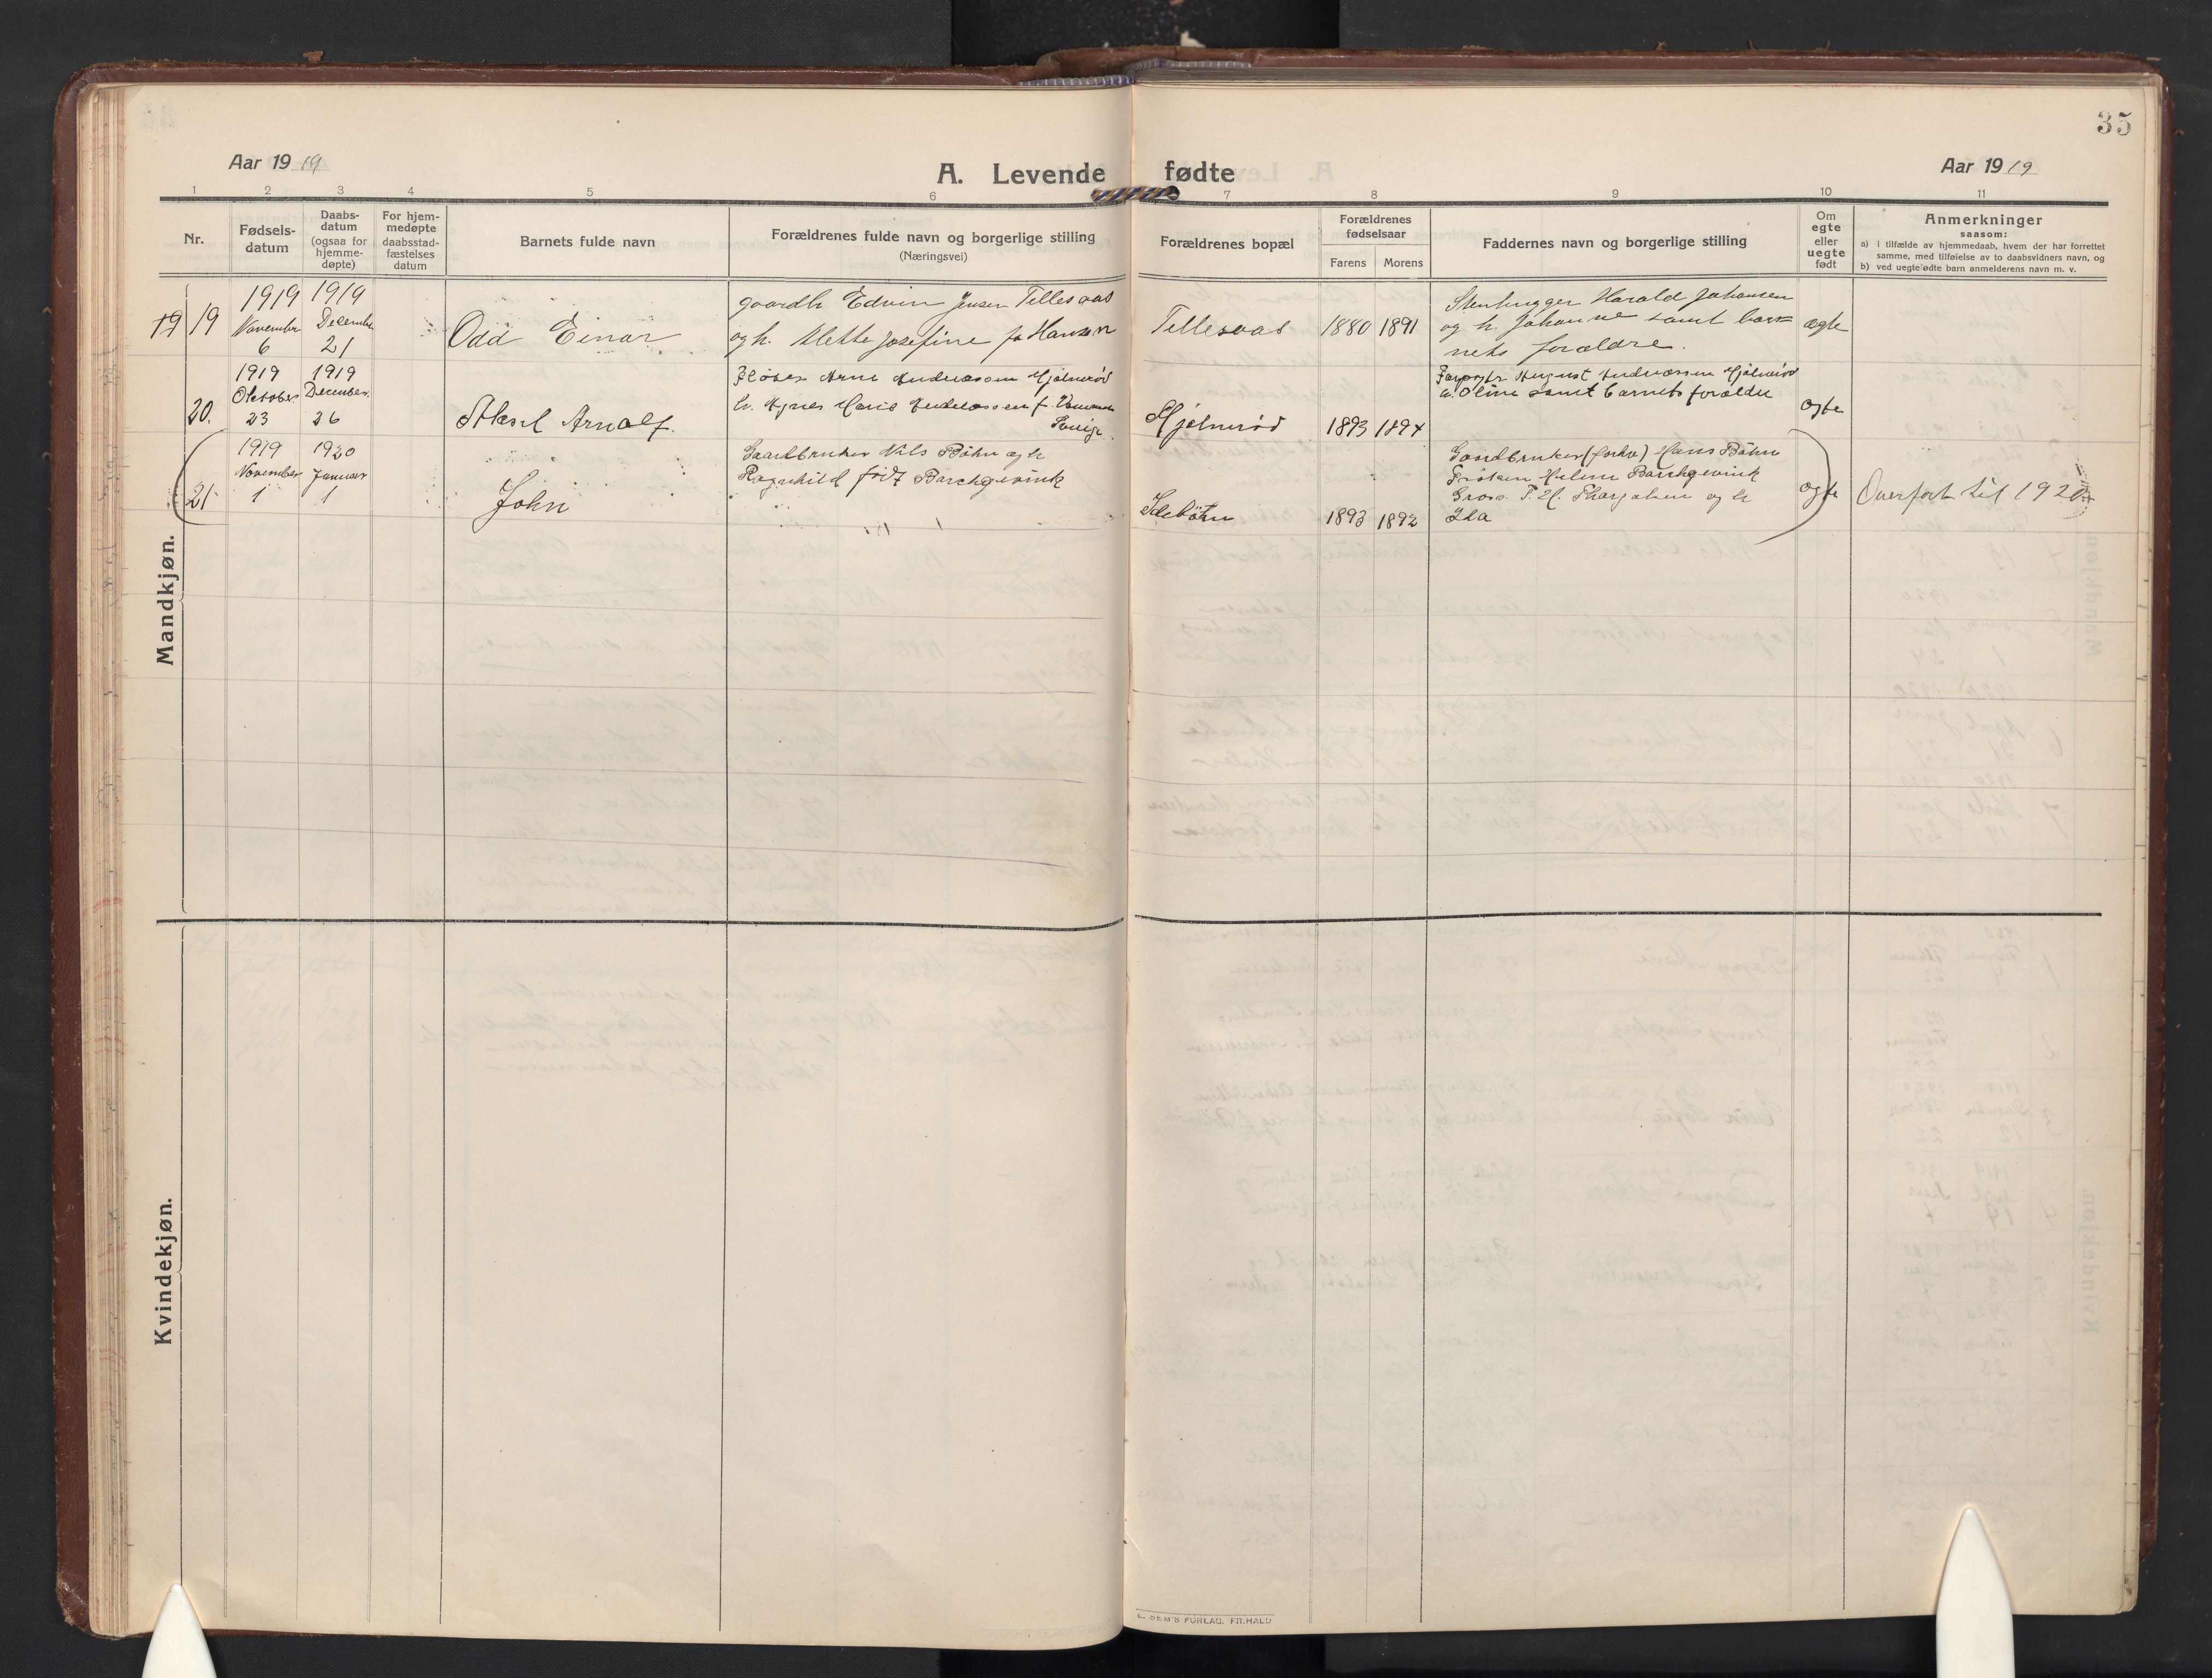 35
Aar 1919
A. Levende fødte
Aar 1919
1 2 3 4 5 6 7 8 9 10 11
Nr.
Fødsels-
datum
Daabs-
datum
(ogsaa for
hjemme-
døpte)
For hjem-
medøpte
daabsstad-
fæstelses
datum
Barnets fulde navn
Forældrenes fulde navn og borgerlige stilling
(Næringsvei)
Forældrenes bopæl
Forældrenes
fødselsaar
Farens Morens
Faddernes navn og borgerlige stilling
Om
egte
eller
uegte
født
Anmerkninger
saasom:
a) i tilfælde av hjemmedaab, hvem der har forrettet
samme, med tilføielse av to daabsvidners navn, og
b) ved uegte fødte barn anmelderens navn m. v.
Mandkjøn.
19 19
1919
November
6
1919
December
21
Odd Einar
gaardbr Edvin Jensen Tillesaas
og h. Mette Josefine f. Hansen
Tillesaas
1880 1891
Stenhugger Harald Johansen
og h. Johanne samt bar=
nets forældre.
ægte
20.
1919
Oktober
23
1919
December
26
Aksel Arnolf.
Fløter Arne Andreassen Hjølnerød
h. Agnes Marie Andreassen f.
Sverige
Hjølnerød
1893 1894
August Andreassen Hjølnerød
h. Oline samt barnets forældre
ægte
21
1919
November
1
1920
Januar
1
John
Gaardbruker Nils Bøhn og h
Ragnhild født Barchgevink
Idebøen
1893 1892
Gaardbruker Hans Bøhn
Frøken Helene Barchgevink
Gross. T. H. og h
Ida
ægte
Overført til 1920
Kvindekjøn.
E. SEM'S FORLAG. FR.HALD